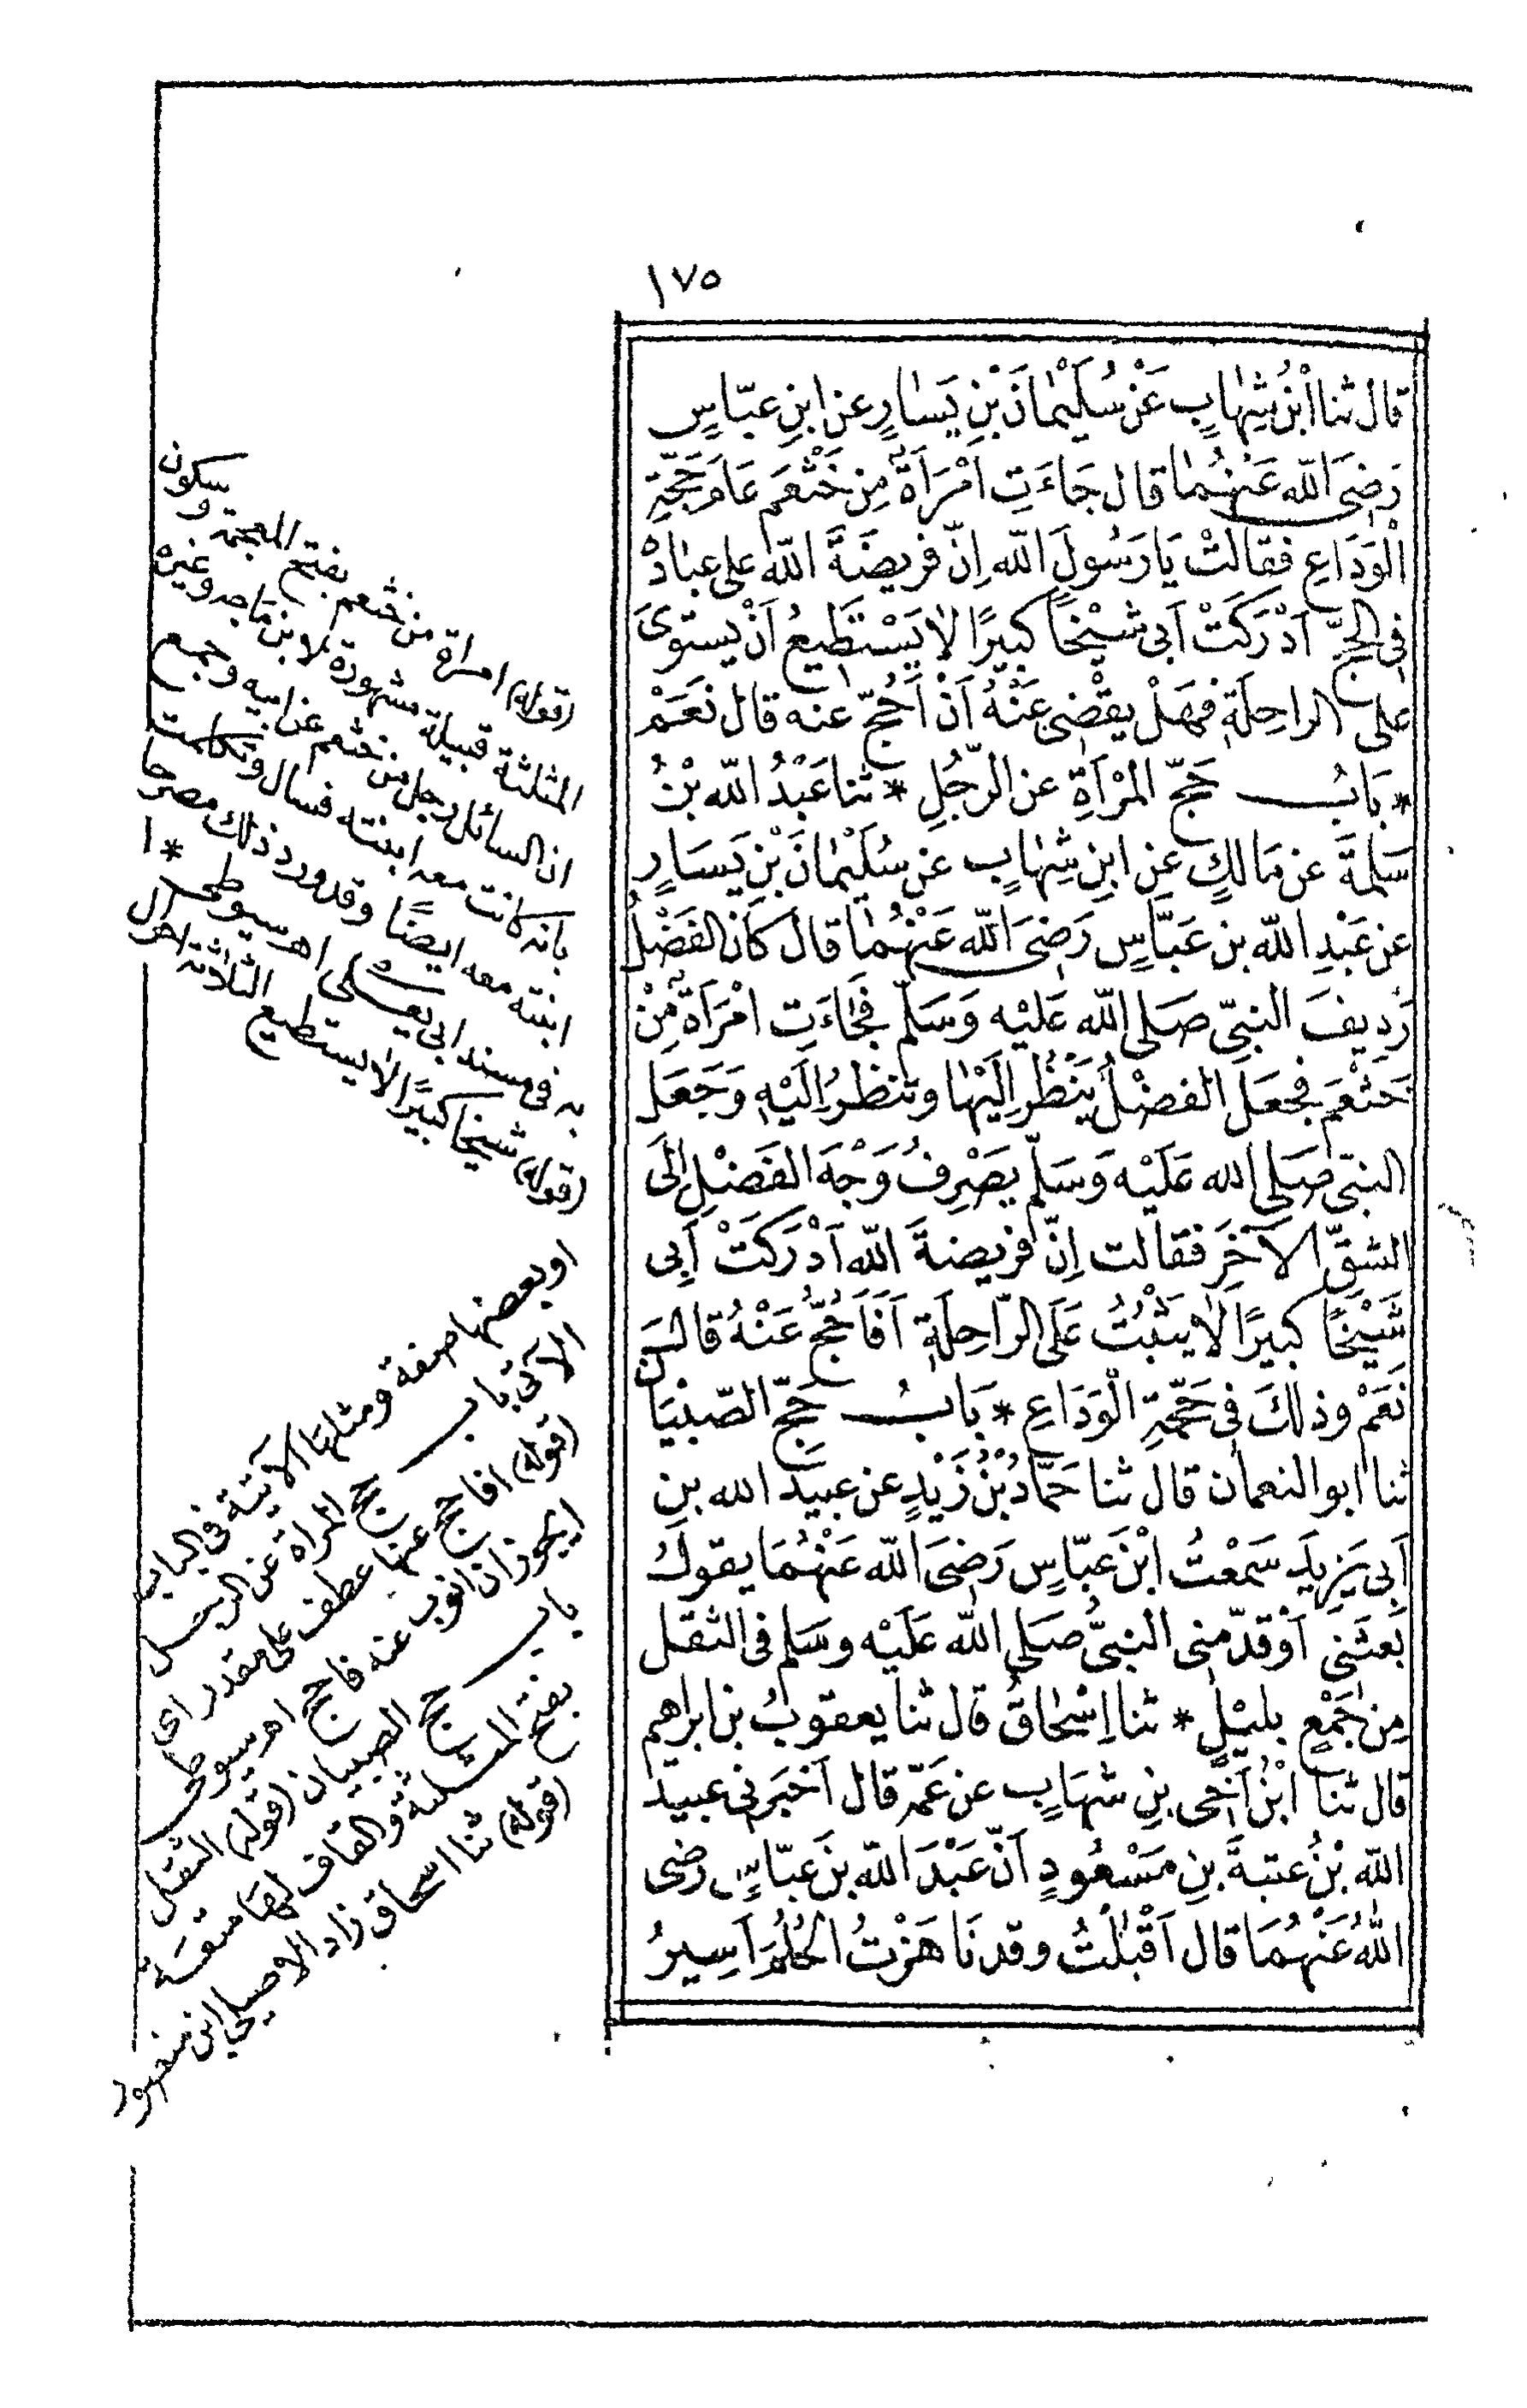 ١٧٥
قال ثنا ابْنُ شِهَابٍ عَنْ سُلَيْمَانَ بْنِ يَسَارٍ عن ابنِ عبّاسٍ
رَضِيَ الله عَنْهُمَا قال جَاءَتِ امْرَأَةٌ مِنْ خَثْعَمَ عَامَ حَجَّةِ
الْوَدَاعِ فقالتْ يَا رَسُولَ الله إنّ فريضَةَ الله على عبادهْ
في الحجِّ أدْرَكَتْ أبى شيْخًا كبيرًا لا يَسْتَطِيعُ أنْ يستوىَ
على الراحِلَةِ فهَلْ يقْضِى عَنْهُ أنْ أحُجّ عنه قال نَعَمْ
* بَابُ حَجِّ المَرْأةِ عن الرّجُلِ * ثنا عَبْدُ الله بْنُ
سَلمةَ عن مَالكٍ عنِ ابنِ شِهَابٍ عن سُلَيْمَانَ بْنِ يَسَارٍ
عن عَبْدِ الله بن عَبَّاسٍ رَضِىَ الله عَنْهُمَا قال كَانَ الفَضْلُ
رَدِيفَ النبىّ صَلى الله عَليْه وَسَلّم فَجَاءَتِ امْرَأةٌ مِنْ
خَثْعَمَ فجعَلَ الفضْلُ يَنْظُرُ إلَيْهَا وتَنظُرُ إلَيْهِ وَجَعَلَ
النبىّ صَلى الله عَلَيْه وَسَلّم يَصْرِفُ وَجْهَ الفَضْلِ إلَى
الشقِّ الآخَرِ فقالت إنّ فريضةَ الله أدْرَكَتْ أبِى
شَيْخًا كبيرًا لا يثْبُتُ عَلَى الرّاحِلَةِ أفَأحُجُّ عَنْهُ قالَ
نَعَمْ وذلكَ فى حَجّةِ الْوَدَاعِ * بَابُ حَجِّ الصّبْيَانِ
ثنا ابو النعمان قال ثنا حَمّادُ بْنُ زَيْدٍ عن عبيد الله بنِ
أبى يَزِيدَ سَمعْتُ ابْنَ عبّاسٍ رَضِىَ الله عَنْهُمَا يقولُ
بَعثَنى أوْ قدّمنى النبىُّ صَلى الله عَلَيْه وسَلم فى الثقل
مِن جَمْعٍ بليْلٍ * ثنا إسْحَاقُ قال ثنا يعقوبُ بن ابراهيم
قال ثنا ابْنُ أخِى بنِ شهَابٍ عن عَمّه قال أخبَرنى عبيد
الله بْنُ عتبةَ بنِ مَسْعُودٍ أنّ عَبْدَ الله بنَ عبّاسٍ رضى
اللهُ عَنْهُمَا قال أقْبَلْتُ وقد نَاهَزْتُ الحُلُمَ أسِيرُ
(قوله) امراة من خثعم بفتح المعجمة وسكون
المثلثة قبيلة مشهورة لابن ماجه وغيره
ان السائل رجل من خثعم عن ابيه وجمع
بانه كانت معه ابنته فسال وتكلمت
ابنته معه ايضًا وقد ورد ذلك مصرحا
به فى مسند ابى يعلى اهـ سيوطى * ا
(قوله) شيخا كبيرًا لا يستطيع الثلاثة احوال
او بعضها صفة ومثلها الآتية فى الباب
الآتى باب حج المراة عن الرجل
(قوله) افاحج عنها عطف على مقدر اى
ايجوز ان انوب عنه فاحج اهـ سيوطى
باب حج الصبيان (قوله) الثقل
بفتح المثلثة والقاف
(قوله) ثنا اسحاق زاد الاصيلى ابن منصور